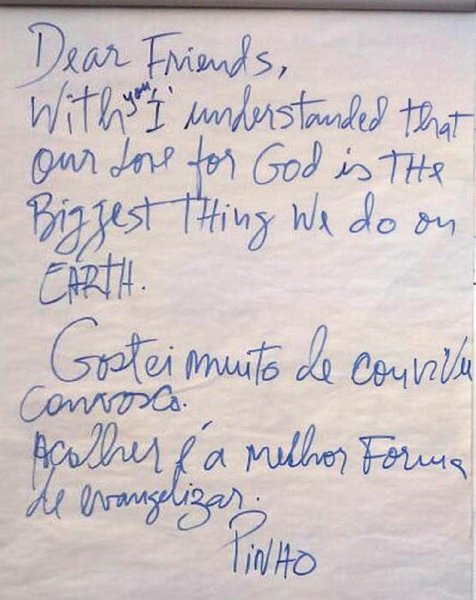 Dear Friends,
With you 'I' understanded that
our Love for God is THE
BiggesT THing We do on
EARTH.
Gostei muito de conviver
convosco.
Acolher é a melhor Forma
de evangelizar.
PiNHO